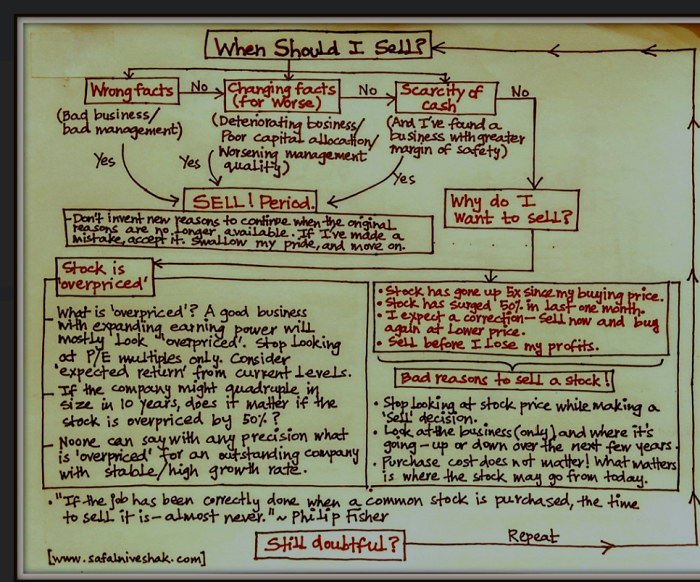 When Should I Sell?
Wrong facts
No
Changing facts
(for worse)
No
Scarcity of
cash
No
(Bad business/
bad management)
(Deteriorating business/
Poor capital allocation/
Worsening management
quality)
(And I've found a
business with greater
margin of safety)
Yes
Yes
Yes
SELL! Period.
Why do I
want to sell?
- Don't invent new reasons to continue when the original
reasons are no longer available. If I've made a
mistake, accept it. Swallow my pride, and move on.
Stock is
'overpriced'
- What is 'overpriced'? A good business
with expanding earning power will
mostly 'look' "overpriced". Stop looking
at P/E multiples only. Consider
'expected return' from current levels.
- If the company might quadruple in
size in 10 years, does it matter if the
stock is overpriced by 50%?
- Noone can say with any precision what
is 'overpriced' for an outstanding company
with stable/high growth rate.
• Stock has gone up 5x since my buying price.
• Stock has surged 50% in last one month.
• I expect a correction - Sell now and buy
again at lower price.
• Sell before I lose my profits.
Bad reasons to sell a stock!
• Stop looking at stock price while making a
'Sell' decision.
• Look at the business (only) and where it's
going - up or down over the next few years.
• Purchase cost does not matter! What matters
is where the stock may go from today.
• "If the job has been correctly done when a common stock is purchased, the time
to sell it is - almost never." ~ Philip Fisher
Still doubtful?
Repeat
[www.safalniveshak.com]